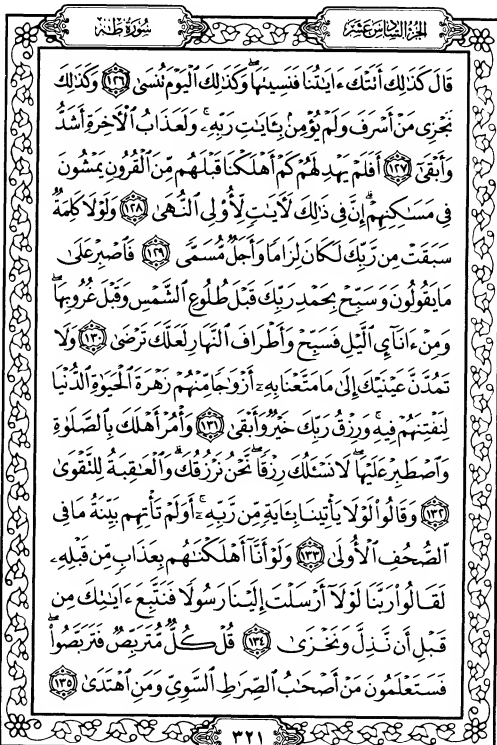 سورة طه الجزء السادس عشر
قَالَ كَذَٰلِكَ أَتَتْكَ ءَايَٰتُنَا فَنَسِينَهَا ۖ وَكَذَٰلِكَ ٱلْيَوْمَ تُنسَىٰ ١٢٦ وَكَذَٰلِكَ
نَجْزِى مَنْ أَسْرَفَ وَلَمْ يُؤْمِنۢ بِـَٔايَٰتِ رَبِّهِۦ ۚ وَلَعَذَابُ ٱلْـَٔاخِرَةِ أَشَدُّ
وَأَبْقَىٰٓ ١٢٧ أَفَلَمْ يَهْدِ لَهُمْ كَمْ أَهْلَكْنَا قَبْلَهُم مِّنَ ٱلْقُرُونِ يَمْشُونَ
فِى مَسَٰكِنِهِمْ ۗ إِنَّ فِى ذَٰلِكَ لَـَٔايَٰتٍ لِّأُو۟لِى ٱلنُّهَىٰ ١٢٨ وَلَوْلَا كَلِمَةٌ
سَبَقَتْ مِن رَّبِّكَ لَكَانَ لِزَامًا وَأَجَلٌ مُّسَمًّى ١٢٩ فَٱصْبِرْ عَلَىٰ
مَا يَقُولُونَ وَسَبِّحْ بِحَمْدِ رَبِّكَ قَبْلَ طُلُوعِ ٱلشَّمْسِ وَقَبْلَ غُرُوبِهَا ۖ
وَمِنْ ءَانَآئِ ٱلَّيْلِ فَسَبِّحْ وَأَطْرَافَ ٱلنَّهَارِ لَعَلَّكَ تَرْضَىٰ ١٣٠ وَلَا
تَمُدَّنَّ عَيْنَيْكَ إِلَىٰ مَا مَتَّعْنَا بِهِۦٓ أَزْوَٰجًا مِّنْهُمْ زَهْرَةَ ٱلْحَيَوٰةِ ٱلدُّنْيَا
لِنَفْتِنَهُمْ فِيهِ ۚ وَرِزْقُ رَبِّكَ خَيْرٌ وَأَبْقَىٰ ١٣١ وَأْمُرْ أَهْلَكَ بِٱلصَّلَوٰةِ
وَٱصْطَبِرْ عَلَيْهَا ۖ لَا نَسْـَٔلُكَ رِزْقًا ۖ نَّحْنُ نَرْزُقُكَ ۗ وَٱلْعَٰقِبَةُ لِلتَّقْوَىٰ
١٣٢ وَقَالُوا۟ لَوْلَا يَأْتِينَا بِـَٔايَةٍ مِّن رَّبِّهِۦٓ ۚ أَوَلَمْ تَأْتِهِم بَيِّنَةُ مَا فِى
ٱلصُّحُفِ ٱلْأُولَىٰ ١٣٣ وَلَوْ أَنَّآ أَهْلَكْنَٰهُم بِعَذَابٍ مِّن قَبْلِهِۦ
لَقَالُوا۟ رَبَّنَا لَوْلَآ أَرْسَلْتَ إِلَيْنَا رَسُولًا فَنَتَّبِعَ ءَايَٰتِكَ مِن
قَبْلِ أَن نَّذِلَّ وَنَخْزَىٰ ١٣٤ قُلْ كُلٌّ مُّتَرَبِّصٌ فَتَرَبَّصُوا۟ ۖ
فَسَتَعْلَمُونَ مَنْ أَصْحَٰبُ ٱلصِّرَٰطِ ٱلسَّوِىِّ وَمَنِ ٱهْتَدَىٰ ١٣٥
٣٢١